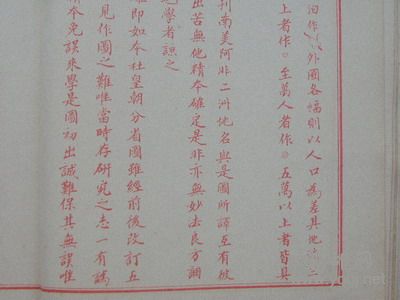 作 外國各幅則以人口為差其地
上者作 至萬人者作 五萬以上者皆具
南美阿非二洲地名與是圖所譯互有彼
出苦無他精本確定是非亦無妙法良可調
學者諒之
即如本社皇朝分省圖雖經前後改訂五
見作圖之難唯當時存研究之志一有誤
本免誤來學是圖初出誠難保其無誤唯